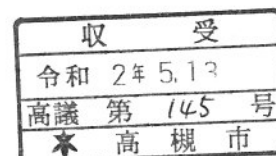 収 受
令和 2年 5.13
高議 第 145 号
★ 高 槻 市